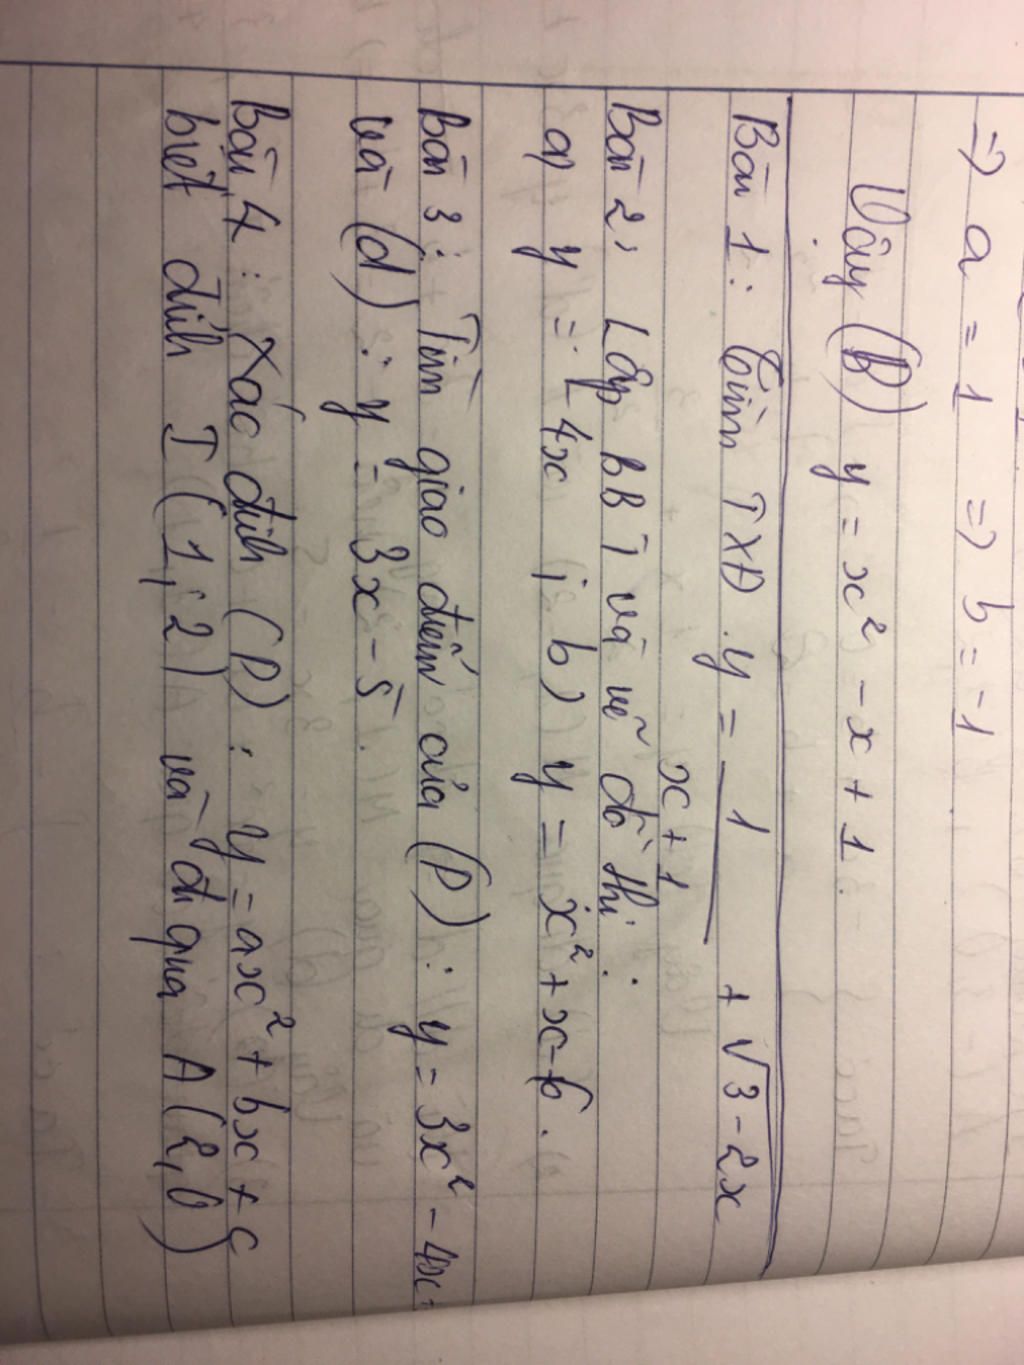 => a = 1 => b = -1
Vậy (P) y = x² - x + 1
Bài 1: Tìm TXĐ y = 1/(x + 1) + √(3 - 2x)
Bài 2: Lập BBT và vẽ đồ thị:
a) y = -4x ; b) y = x² + x - 6.
Bài 3: Tìm giao điểm của (P): y = 3x² - 4x
và (d): y = 3x - 5
Bài 4: Xác định (P): y = ax² + bx + c
biết đỉnh I(1, 2) và đi qua A(2, 0)